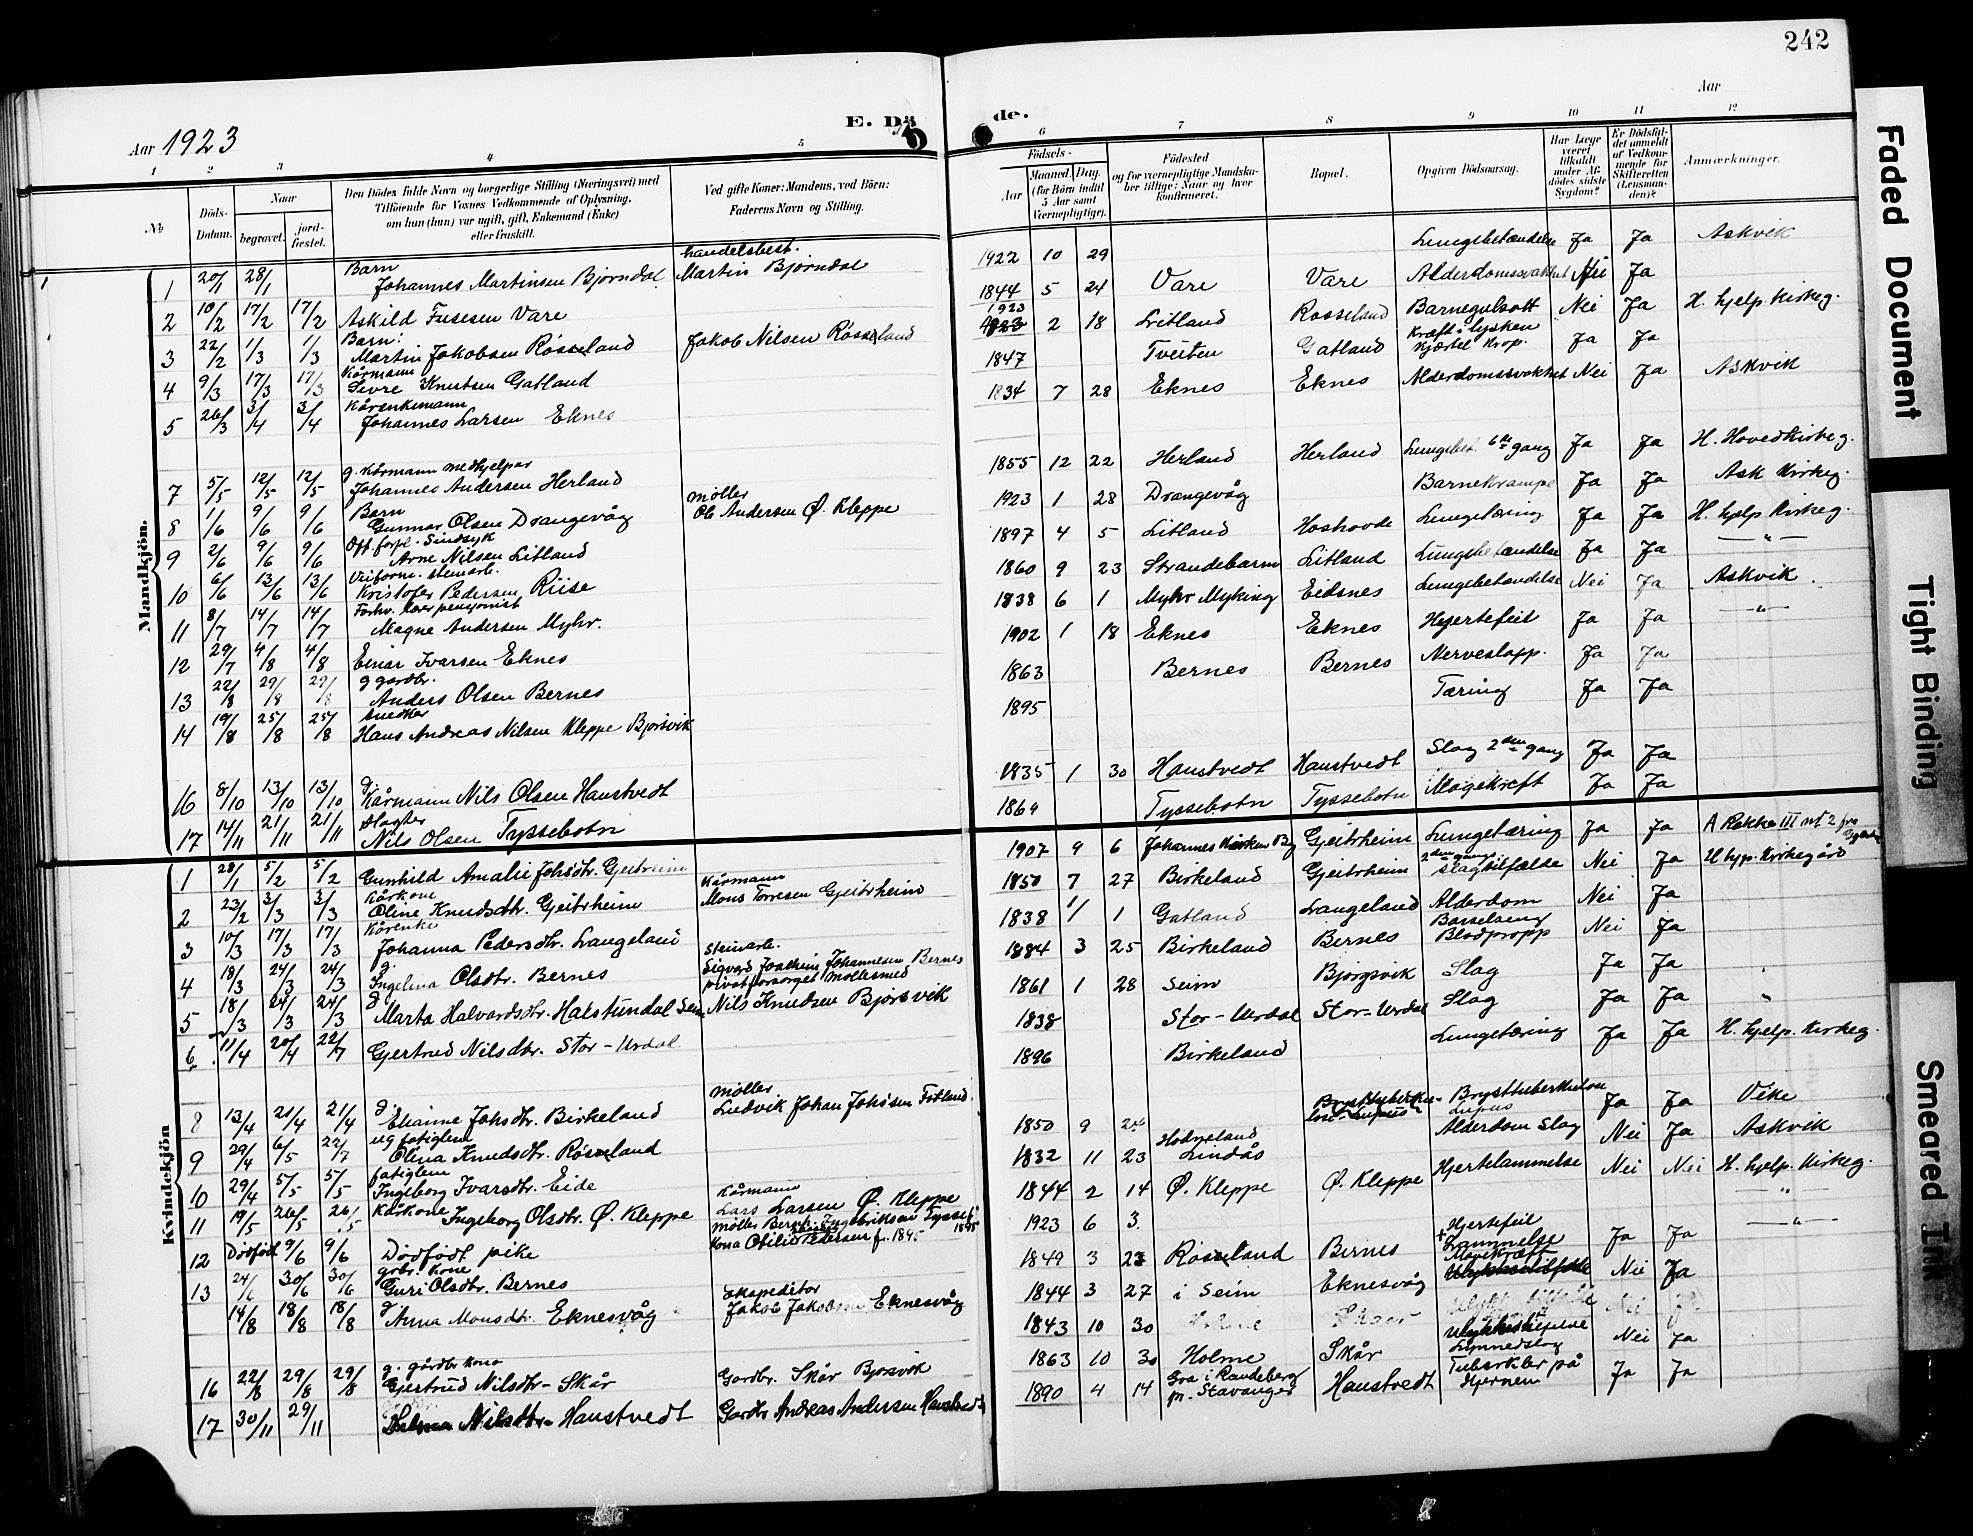 242
Aar 1923
E. Dö
de.
Aar
1 2 3 4 5 6 7 8 9 10 11 12
№
Döds-Datum.
Naar
begravet.
jord-fæstet.
Den Dödes fulde Navn og borgerlige Stilling (Næringsvei) med
Tilföiende for Voxnes Vedkommende af Oplysning,
om han (hun) var ugift, gift, Enkemand (Enke)
eller fraskilt.
Ved gifte Koner: Mandens, ved Börn:
Faderens Navn og Stilling.
Födsels-
Aar
Maaned. Dag.
(for Börn indtil 5 Aar samt Værnepligtige).
Födested
og for værnepligtige Mandska-
ber tillige: Naar og hvor
konfirmeret.
Bopæl.
Opgiven Dödsaarsag.
Har Læge været tilkaldt under Af-dödes sidste Sygdom?
Er Dödsfal-det anmeldt af Vedkom-mende for Skifteretten (Lensman-den)?
Anmærkninger.
Mandkjön.
1 20/1 28/1 Barn Johannes Martinsen Bjørndal handelsbest. Martin Bjørndal 1922 10 29 Lungebetændelse Ja Ja Askvik
2 10/2 17/2 17/2 Askild Fusesen Vare 1844 5 24 Vare Vare Alderdomssvakhet Nei Ja
3 22/2 1/3 1/3 Barn: Martin Jakobsen Røsseland Jakob Nilsen Røsseland 1923 2 18 Litland Rosseland Barnegulsott Nei Ja H. hjelp. Kirkeg.
4 9/3 17/3 17/3 Kårmann Sevre Knutsen Gatland 1847 Tveiten Gatland Kræft i lysken Kjærtel Krop. Ja Ja
5 26/3 3/4 3/4 Kårenkemann Johannes Larsen Eknes 1834 7 28 Eknes Eknes Alderdomssvakhet Nei Ja Askvik
7 5/5 12/5 12/5 g. Kårmann medhjelper Johannes Andersen Herland 1855 12 22 Herland Herland Lungebet. 6te gang Ja Ja H. Hovedkirkeg.
8 1/6 9/6 9/6 Barn Gunnar Olsen Drangevåg Møller Ole Andersen Ø. Kleppe 1923 1 28 Drangevåg Barnekrampe Ja Ja Ask Kirkeg.
9 2/6 9/6 9/6 Off. forpl. Sindsyk Arne Nilsen Litland 1897 4 5 Litland Hoshovde Lungetæring Ja Ja H. hjelp Kirkeg.
10 6/6 13/6 13/6 steinarb. Kristofer Pedersen Riise 1860 9 23 Strandebarm Litland Lungebetændelse Ja Ja —"—
11 8/7 14/7 14/7 Forhv. lærer pensjonist Magne Andersen Myhr. 1838 6 1 Myhr Myking Eidsnes Lungebetændelse Nei Ja Askvik
12 29/7 4/8 4/8 Einar Ivarsen Eknes 1902 1 18 Eknes Eknes Hjertefeil Ja Ja —"—
13 22/8 29/8 29/8 g gardbr. Anders Olsen Bernes 1863 Bernes Bernes Nerveslapp. Ja Ja
14 19/8 25/8 25/8 Snedker Hans Andreas Nilsen Kleppe Bjørsvik 1895 Tæring Ja Ja
16 8/10 13/10 13/10 g Kårmann Nils Olsen Hanstvedt 1835 1 30 Hanstvedt Hanstvedt Slag 2den gang Ja Ja
17 14/11 21/11 21/11 Slagter Nils Olsen Tyssebotn 1869 Tyssebotn Tyssebotn Magekreft Ja Ja
Kvindekjön
1 28/1 5/2 5/2 Gunhild Amalie Johsdtr. Gjeitrheim 1907 9 6 Johannes Gjeitrheim Lungetæring Ja Ja A Rekke III nr 2 fra
2 23/2 3/3 3/3 Kårkone Oline Knudsdtr. Gjeitrheim Kårmann Mons Torresen Gjeitrheim 1850 7 27 Birkeland Gjeitrheim 2den gangs slagtilfælde Nei Ja H hjp. Kirkegård
3 10/3 17/3 17/3 Kårenke Johanna Pedersdtr. Langeland 1838 1/ 1 Gatland Langeland Alderdom Nei Ja
4 18/3 24/3 24/3 g. Ingelina Olsdtr. Bernes Steinarb. Sigvard Joachim Johannesen Bernes 1884 3 25 Birkeland Bernes Barselseng Blodpropp Nei Ja
5 18/3 24/3 24/3 g Marta Halvardsdtr. Halstundal Seim privat forsørget møllesmed Nils Knudsen Bjørsvik 1861 1 28 Seim Bjørgsvik Slag Ja Ja
6 11/4 20/4 22/7 Gjertrud Nilsdtr. Stor-Urdal 1838 Stor-Urdal Stor-Urdal Slag Ja Ja
8 13/4 21/4 21/4 g. Elianne Johsdtr. Birkeland Møller Ludvik Johan Johssen Fotland 1896 Birkeland Lungetæring Ja Ja H. hjelp. Kirkeg.
9 29/4 6/5 22/7 ug fatiglem Olina Knudsdtr. Røsseland 1850 9 Hodneland Brysttuberkulose Lupus Ja Ja Vike
10 29/4 5/5 5/5 fatiglem Ingeborg Ivarsdtr. Eide 1832 11 23 Lindås Alderdom Slag Nei Ja Askvik
11 19/5 26/5 26/5 Kårkone Ingeborg Olsdtr. Ø. Kleppe Kårmann Lars Larsen Ø. Kleppe 1844 2 14 Ø. Kleppe Ø. Kleppe Hjertelammelse Nei Nei H. hjelp. Kirkeg.
12 Dødfødt 9/6 9/6 Dødfødt pike Møller Bernh. Ingebriktsen Tysse f. 1895 Kona Otilie Pedersen f. 1895 1923 6 3 —"—
13 24/6 30/6 30/6 grbr. kone Guri Olsdtr. Bernes 1849 3 23 Rosseland Bernes Hjertefeil + Lammelse Ja Ja —"—
14/8 18/8 18/8 g Anna Monsdtr. Eknesvåg Ekspeditør Jakob Jakobsen Eknesvåg 1844 3 27 i Seim Eknesvåg Mavekræft Nei Ja
1843 10 30
16 22/8 29/8 29/8 g. gårdbr kone Gjertrud Nilsdtr - Skår Gardbr. Skår Bjørsvik 1863 10 30 Holme Skår Nei Ja
17 30/11 29/11 Nilsdtr- Hanstvedt Gardbr Andreas Andersen Hanstvedt 1890 4 14 Gra i Randeberg pr. Stavanger Hanstvedt Tuberkler på Hjernen Ja Ja
Faded Document
Tight Binding
Smeared Ink